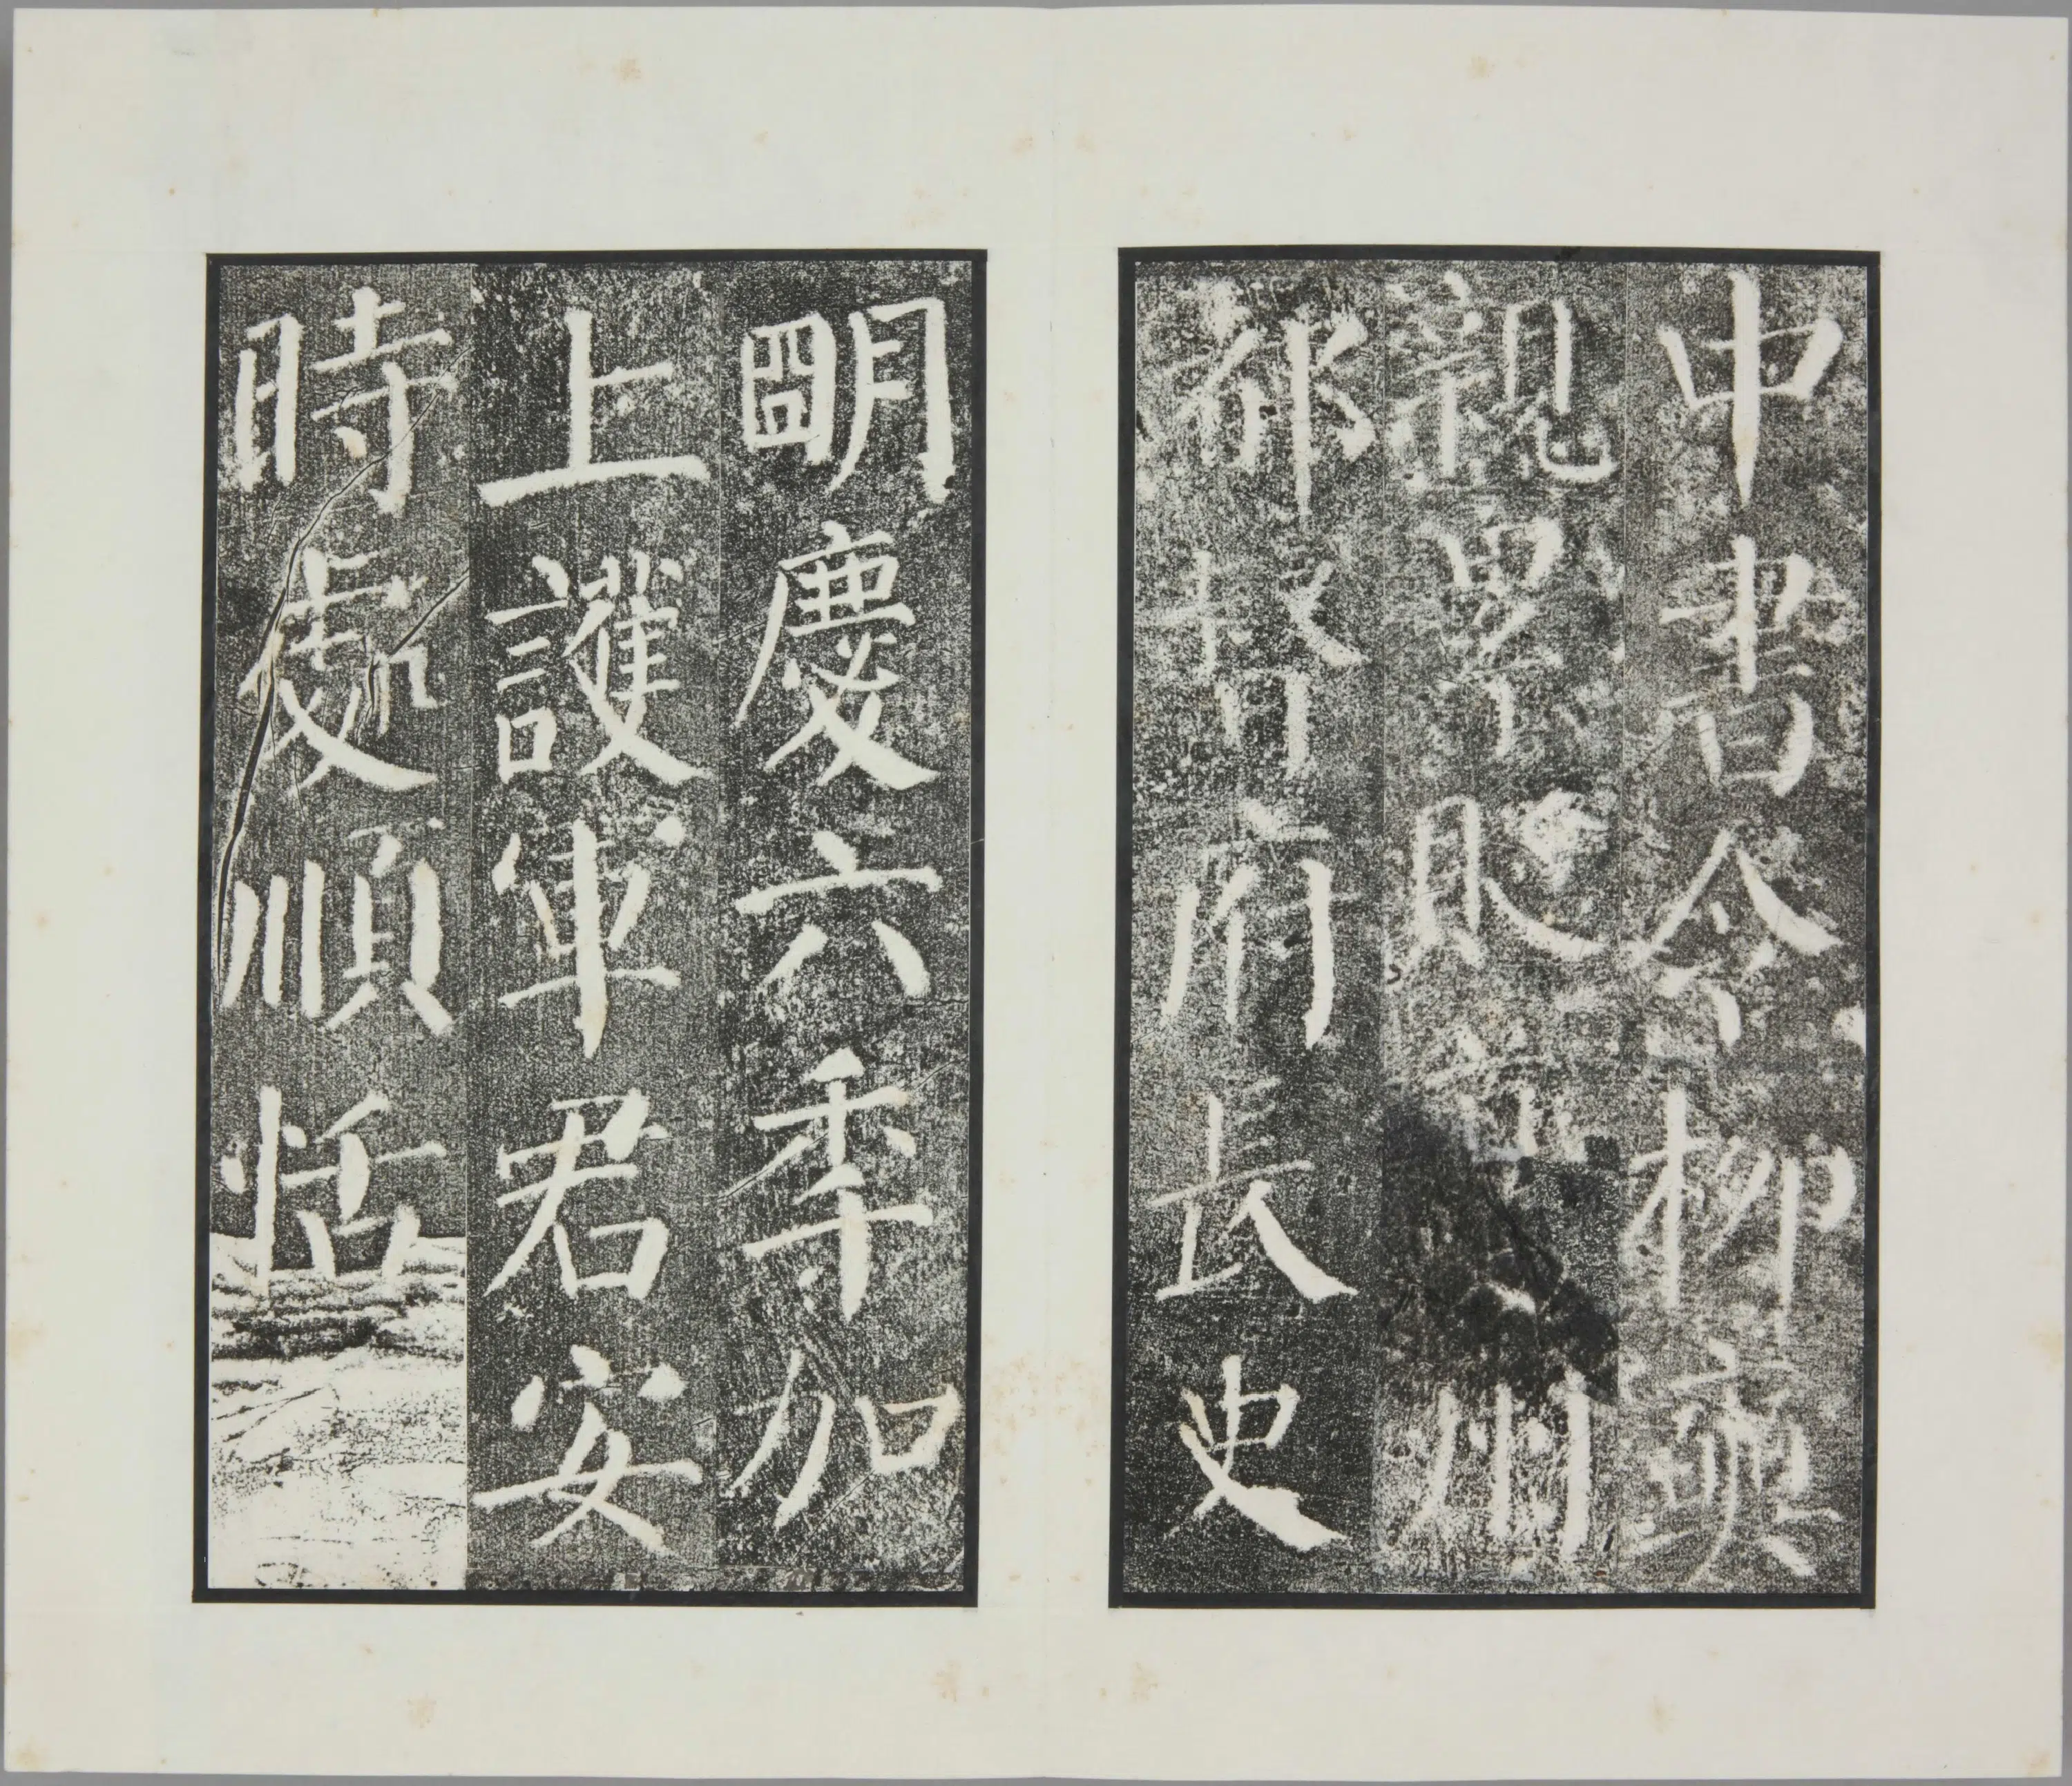 中書令柳奭
親累貶州
都督府長史
朙慶六秊加
上護軍君安
時處順恬